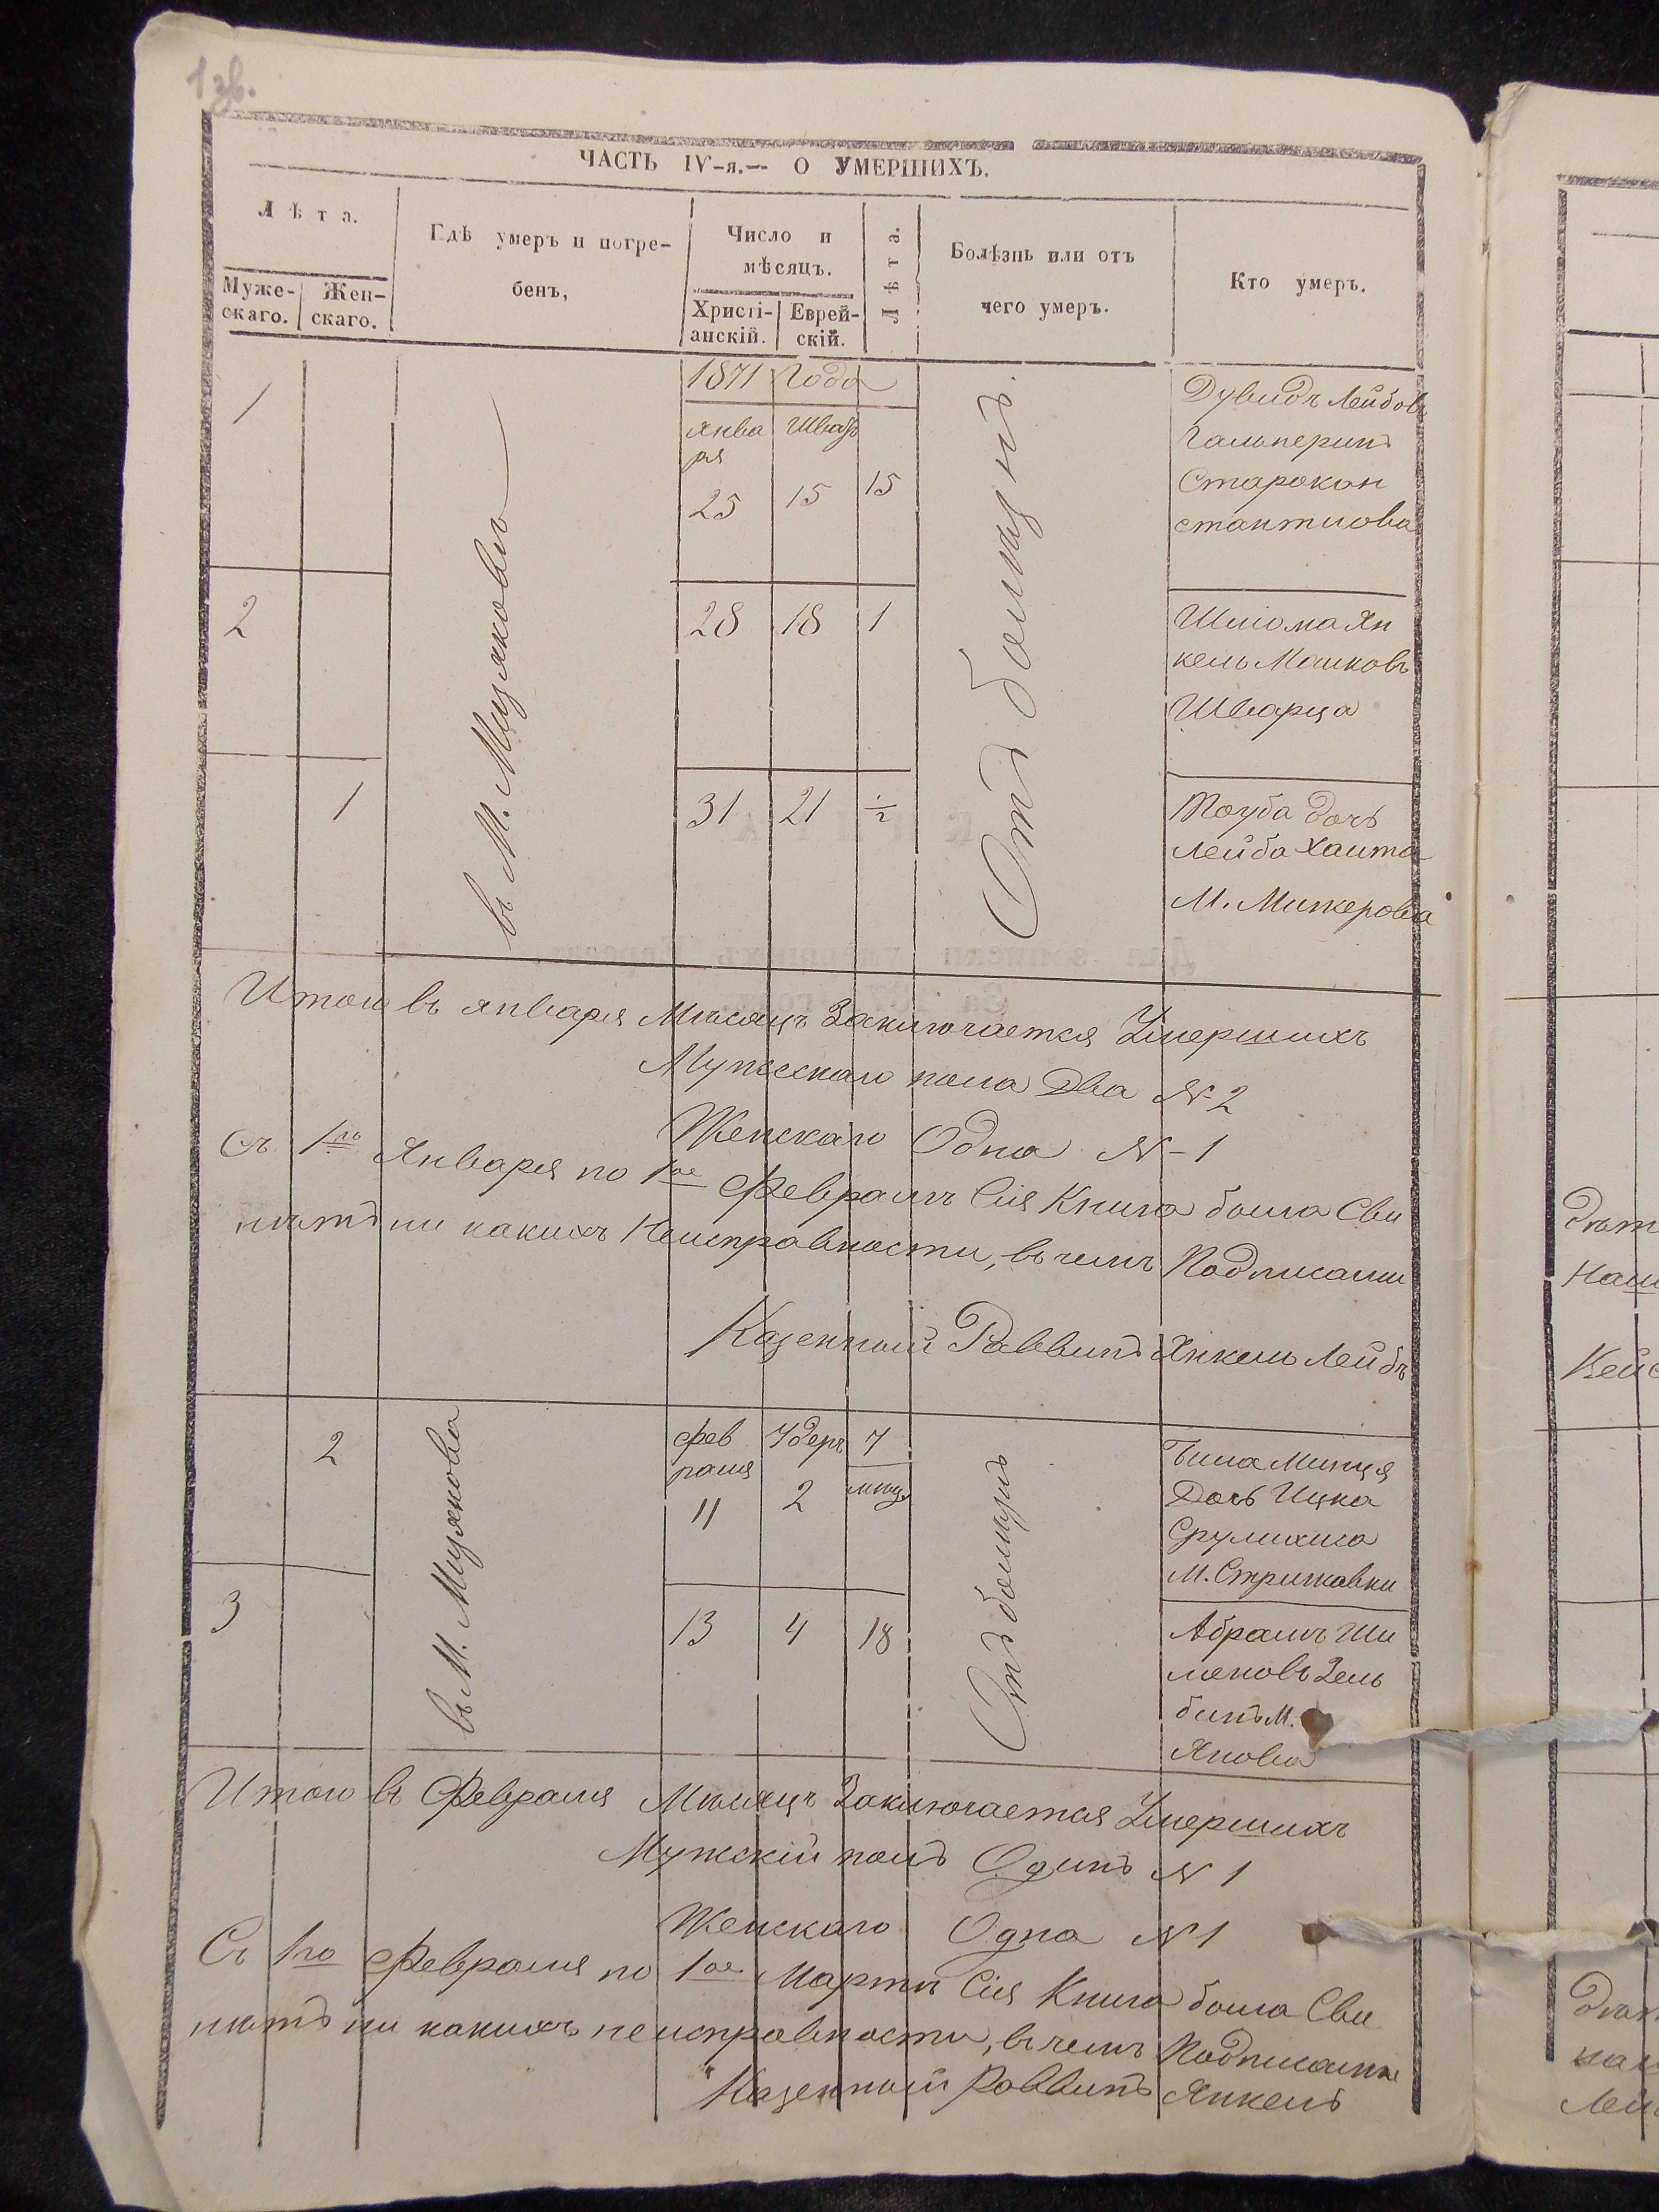 1 зв.
ЧАСТЬ IV-я.— О УМЕРШИХЪ.
Лѣта.
Муже-
скаго.
Жен-
скаго.
Гдѣ умеръ и погре-
бенъ,
Число и
мѣсяцъ.
Христі-
анскій.
Еврей-
скій.
Лѣта.
Болѣзнь или отъ
чего умеръ.
Кто умеръ.
1871 Года
1
въ М. Мизяковъ
Янва
ря
25
Шватъ
15
15
Отъ болизнъ
Дувидъ Лейбовъ
Гальперинъ
Старокон
стантинова
2
28
18
1
Шліома Ян
кель Мошковъ
Шварца
1
31
21
½
Тоуба дочь
Лейба Хаита
М. Мижерова
Итого въ января Мѣсяцъ Заключается Умершихъ
Мужескаго пола Два № 2
Женскаго Одна № - 1
Съ 1го Января по 1ое Февраль Сія Книга была Сви
нѣтъ ни какихъ Неисправности, въ чемъ Подписали
Казенный Раввинъ Янкель Лейбъ
2
въ М. Мизякова
Фев
раля
11
Удеръ
2
7
мѣц
Отъ болизнъ
Дочь Ицка
М. Стрижавки
3
13
4
18
Абрамъ Ши
меновъ Зель
бинъ М.
Янова
Итого въ Февраля Мѣсяцъ Заключается Умершихъ
Мужскій полъ Одинъ № 1
Женскаго Одна № 1
Съ 1го Февраля по 1ое Мартъ Сія Книга была Сви
нѣтъ ни какихъ неисправности, въ чемъ Подписали
Казенный Раввинъ Янкель